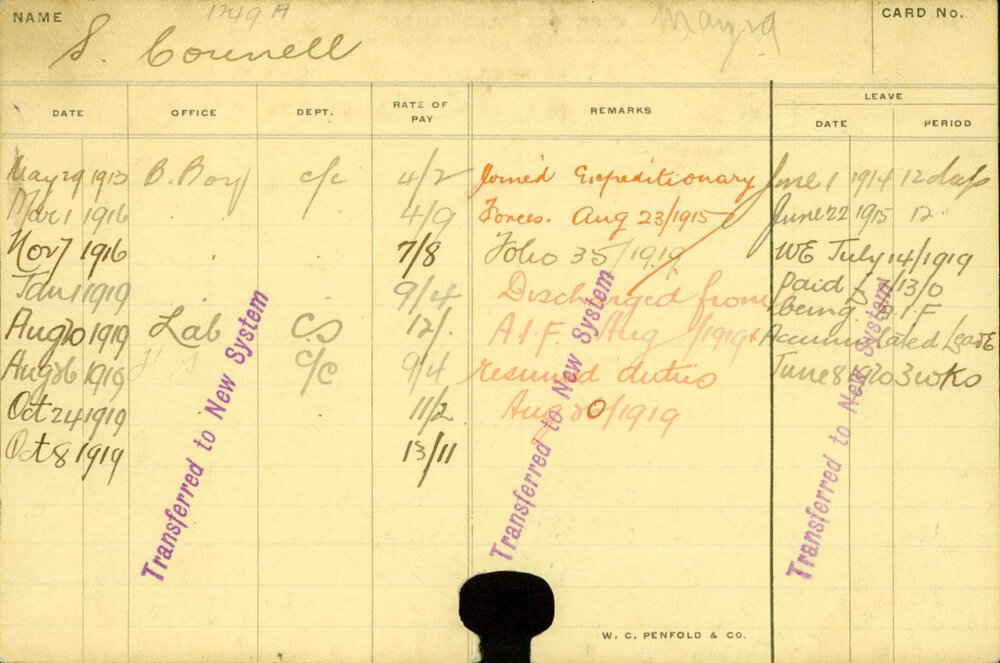 NAME 1249 A CARD No.
S. Connell
DATE OFFICE DEPT. RATE OF PAY REMARKS LEAVE
DATE PERIOD
May 29 1913 B. Boy c/c 4/2 Joined Expeditionary June 1 1914 12 days
Mar 1 1916 " " 4/9 Forces. Aug 23/1915 June 22 1915 12 "
Nov 7 1916 " " 7/8 Folio 35/1919 WE July 14/1919
Jan 1 1919 9/4 Discharged from Paid £ /13/0
being A.I.F
Aug 20 1919 Lab C.S 12/. A.I.F. Aug /1919 & Accumulated Leave
Aug 26 1919 c/c 9/4 resumed duties June 8 1920 3 wks
Oct 24 1919 11/2 Aug 20/1919
Oct 8 1919 13/11
Transferred to New System
Transferred to New System
Transferred to New System
W. C. PENFOLD & CO.